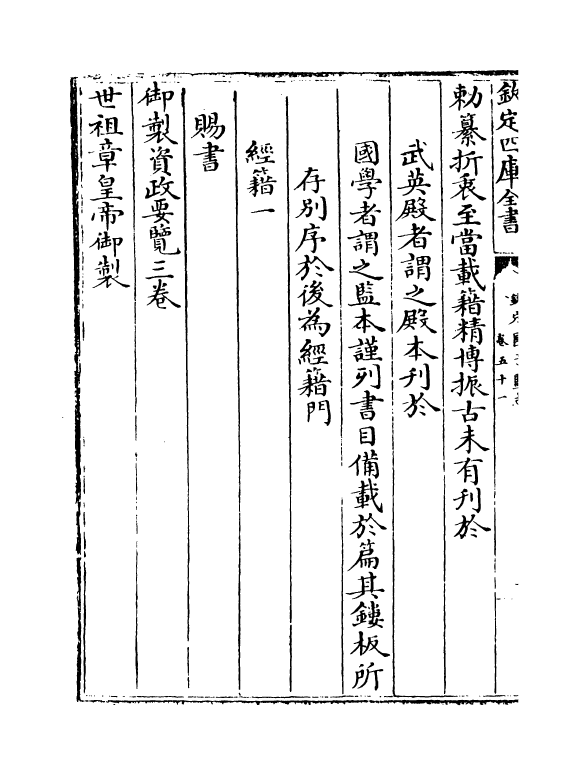 欽定四庫全書
卷五十一
勅纂折衷至當載籍精博振古未有刊於
武英殿者謂之殿本刊於
國學者謂之監本謹列書目備載於篇其鏤板所
存別序於後為經籍門
經籍一
賜書
御製資政要覽三卷
世祖章皇帝御製